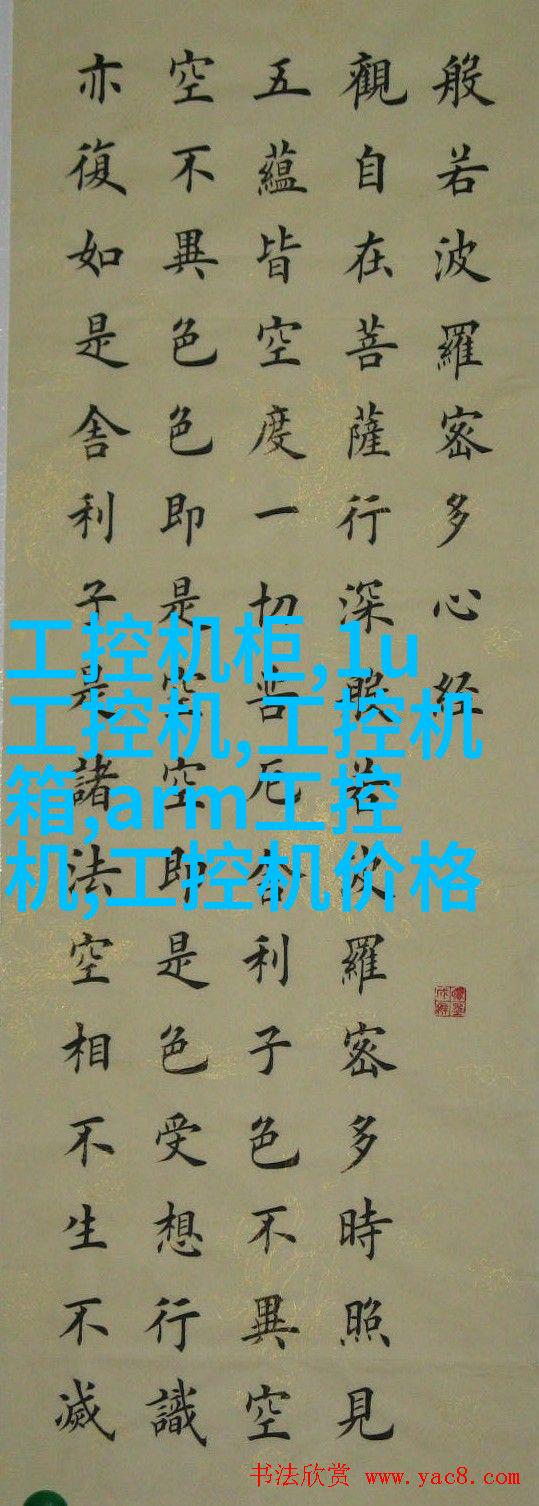 般若波羅密多心经
觀自在菩薩行深般若波羅密多時照見
五蘊皆空度一切苦厄舍利子色不異空
空不異色色即是空空即是色受想行識
亦復如是舍利子是諸法空相不生不滅
工控机柜,1u
工控机,工控机
箱,arm工控
机,工控机价格
书法欣赏 www.yac8.com